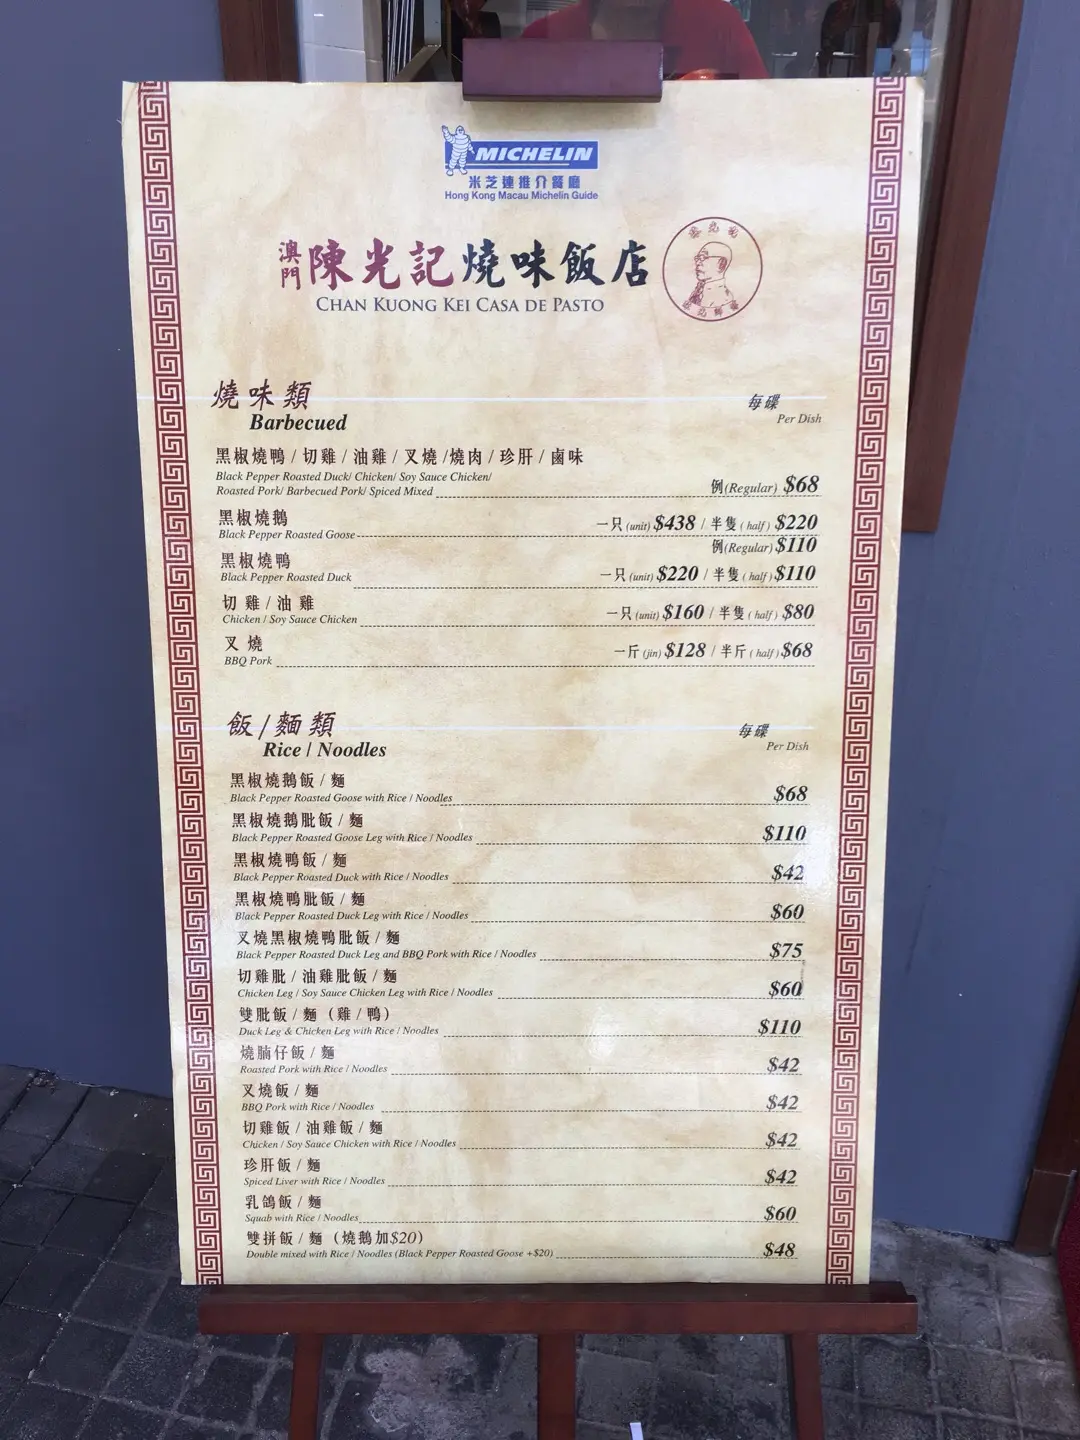 MICHELIN
米芝連推介餐廳
Hong Kong Macau Michelin Guide
澳門陳光記燒味飯店
CHAN KUONG KEI CASA DE PASTO
燒味類 每碟
Barbecued Per Dish
黑椒燒鴨 / 切雞 / 油雞 / 叉燒 /燒肉 / 珍肝 / 鹵味
Black Pepper Roasted Duck/ Chicken/ Soy Sauce Chicken/
Roasted Pork/ Barbecued Pork/ Spiced Mixed 例(Regular) $68
黑椒燒鵝 一只(unit) $438 / 半隻(half) $220
Black Pepper Roasted Goose 例(Regular) $110
黑椒燒鴨
Black Pepper Roasted Duck 一只(unit) $220 / 半隻(half) $110
切雞 / 油雞
Chicken / Soy Sauce Chicken 一只(unit) $160 / 半隻(half) $80
叉燒
BBQ Pork 一斤(jin) $128 / 半斤(half) $68
飯/麵類 每碟
Rice / Noodles Per Dish
黑椒燒鵝飯 / 麵
Black Pepper Roasted Goose with Rice / Noodles $68
黑椒燒鵝肶飯 / 麵
Black Pepper Roasted Goose Leg with Rice / Noodles $110
黑椒燒鴨飯 / 麵
Black Pepper Roasted Duck with Rice / Noodles $42
黑椒燒鴨肶飯 / 麵
Black Pepper Roasted Duck Leg with Rice / Noodles $60
叉燒黑椒燒鴨肶飯 / 麵
Black Pepper Roasted Duck Leg and BBQ Pork with Rice / Noodles $75
切雞肶 / 油雞肶飯 / 麵
Chicken Leg / Soy Sauce Chicken Leg with Rice / Noodles $60
雙肶飯 / 麵 (雞 / 鴨)
Duck Leg & Chicken Leg with Rice / Noodles $110
燒腩仔飯 / 麵
Roasted Pork with Rice / Noodles $42
叉燒飯 / 麵
BBQ Pork with Rice / Noodles $42
切雞飯 / 油雞飯 / 麵
Chicken / Soy Sauce Chicken with Rice / Noodles $42
珍肝飯 / 麵
Spiced Liver with Rice / Noodles $42
乳鴿飯 / 麵
Squab with Rice / Noodles $60
雙拼飯 / 麵 (燒鵝加$20)
Double mixed with Rice / Noodles (Black Pepper Roasted Goose +$20) $48